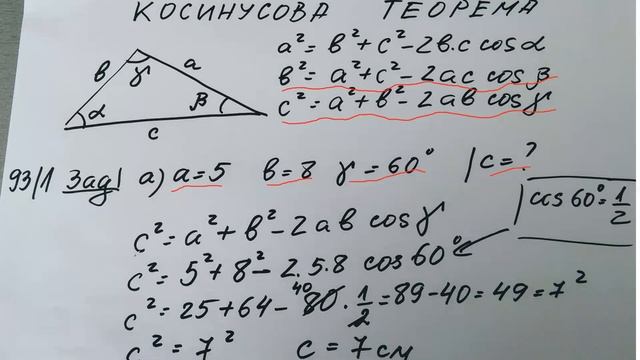 КОСИНУСОВА ТЕОРЕМА
a² = b² + c² - 2b.c cosα
b² = a² + c² - 2ac cosβ
c² = a² + b² - 2ab cosγ
b γ a
α β
c
93/1 Зад| а) a = 5 b = 8 γ = 60° | c = ?
cos 60° = 1/2
c² = a² + b² - 2ab cosγ
c² = 5² + 8² - 2.5.8 cos60°
40
c² = 25 + 64 - 80 . 1/2 = 89 - 40 = 49 = 7²
c² = 7² c = 7 см